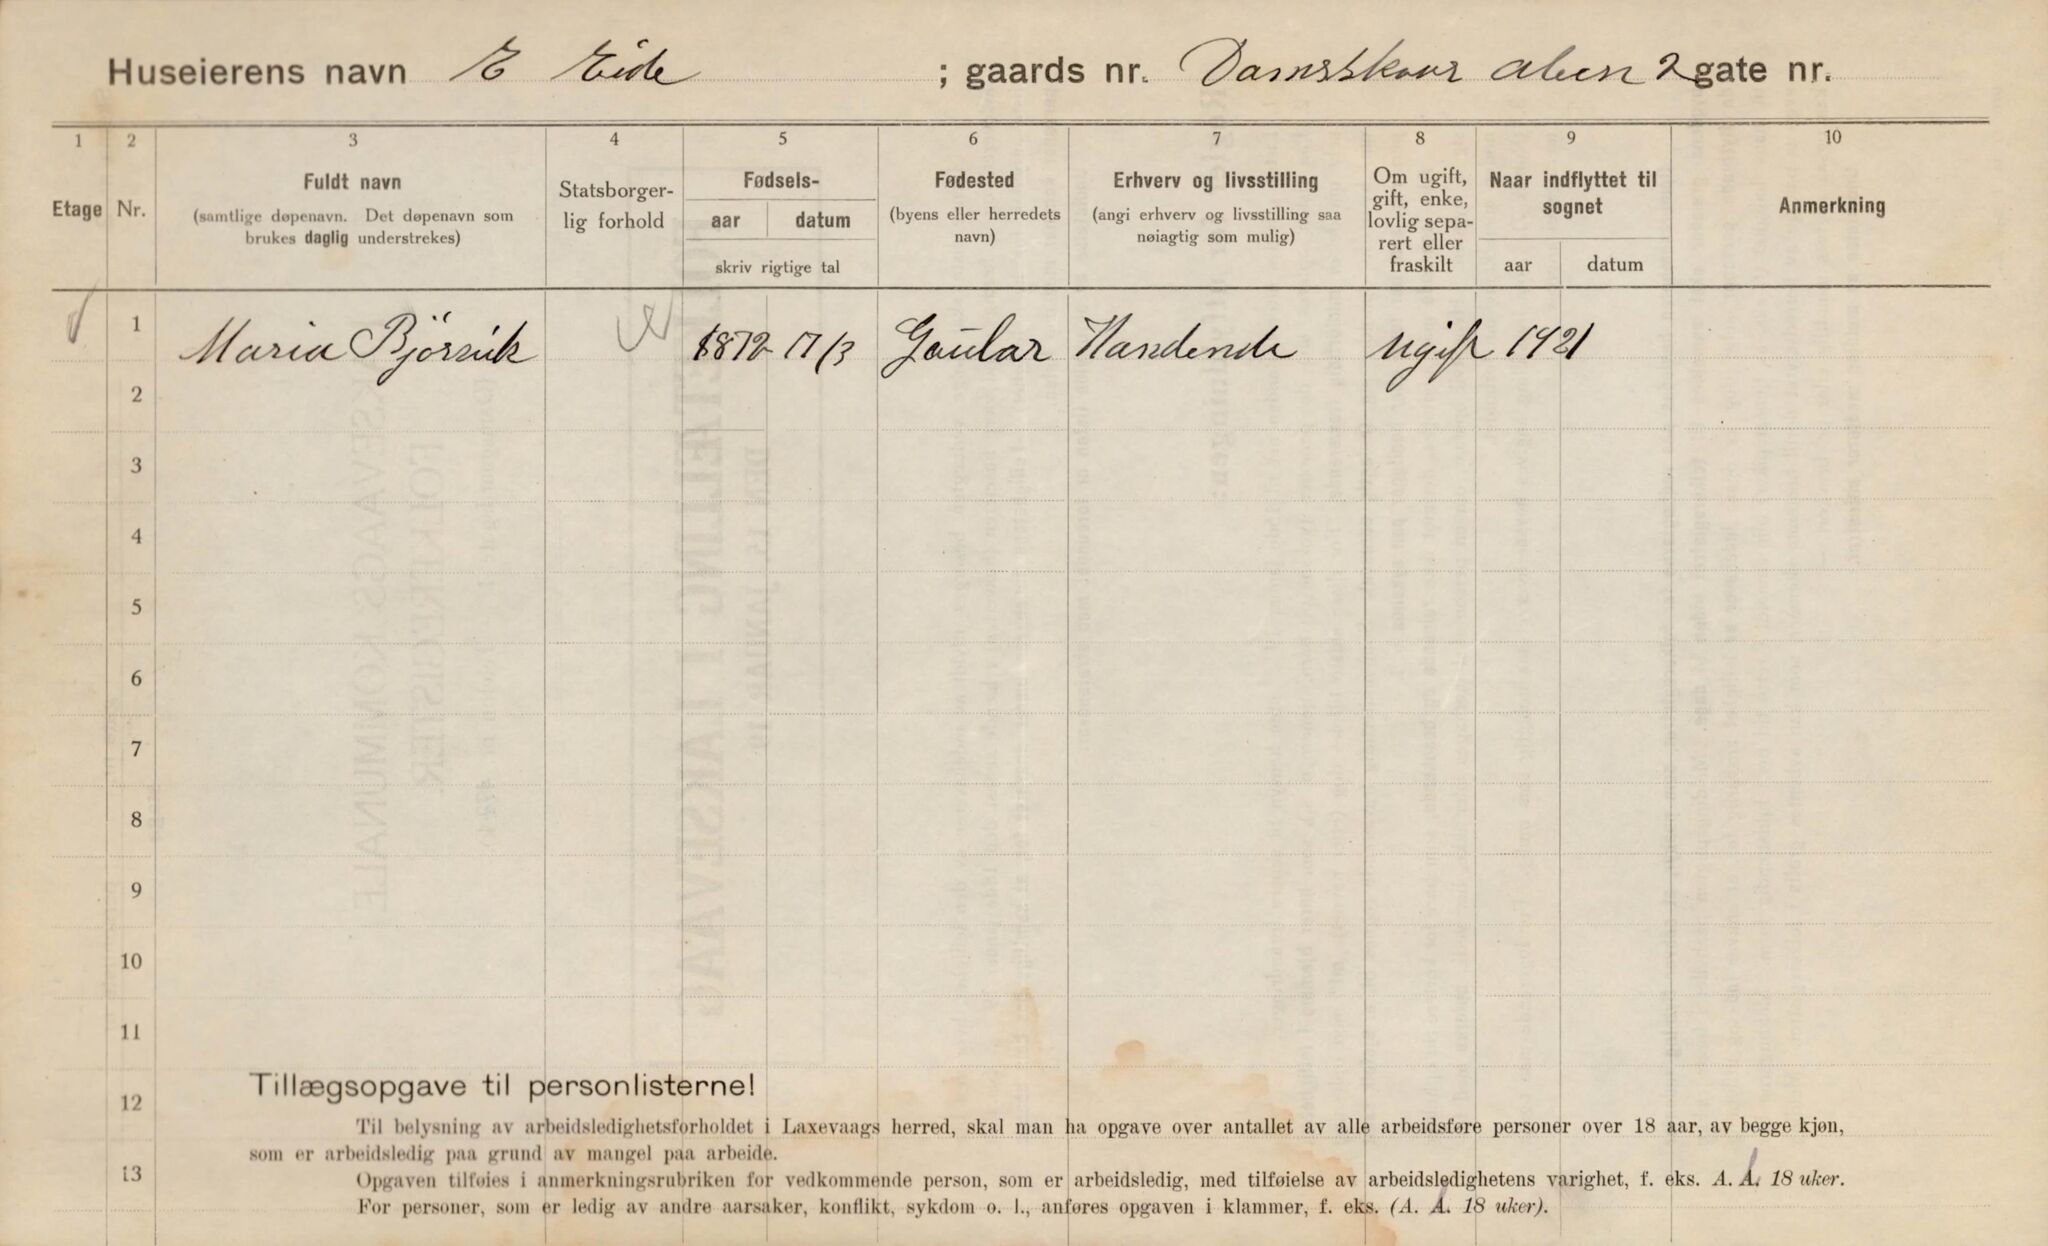 Huseierens navn E Eide ; gaards nr. 2 gate nr.
1 2 3 4 5 6 7 8 9 10
Etage Nr. Fuldt navn (samtlige døpenavn. Det døpenavn som brukes daglig understrekes) Statsborgerlig forhold Fødsels- aar datum skriv rigtige tal Fødested (byens eller herredets navn) Erhverv og livsstilling (angi erhverv og livsstilling saa nøiagtig som mulig) Om ugift, gift, enke, lovlig separert eller fraskilt Naar indflyttet til sognet aar datum Anmerkning
1 Maria 1872 17/3 Gaular Handende ugift 1921
2
3
4
5
6
7
8
9
10
11
Tillægsopgave til personlisterne!
12
Til belysning av arbeidsledighetsforholdet i Laxevaags herred, skal man ha opgave over antallet av alle arbeidsføre personer over 18 aar, av begge kjøn,
som er arbeidsledig paa grund av mangel paa arbeide.
13
Opgaven tilføies i anmerkningsrubriken for vedkommende person, som er arbeidsledig, med tilføielse av arbeidsledighetens varighet, f. eks. A. A. 18 uker.
For personer, som er ledig av andre aarsaker, konflikt, sykdom o. l., anføres opgaven i klammer, f. eks. (A. A. 18 uker).